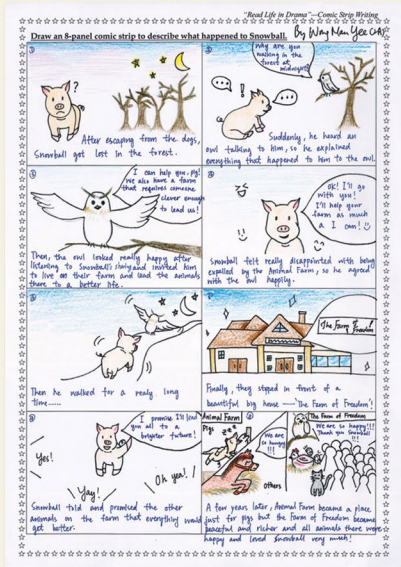 "Read Life in Drama"—Comic Strip Writing
Draw an 8-panel comic strip to describe what happened to Snowball.
By Wong Man Yee
①
?
After escaping from the dogs,
Snowball got lost in the forest.
②
Why are you
walking in the
forest at
midnight?
!
Suddenly, he heard an
owl talking to him, so he explained
everything that happened to him to the owl.
③
I can help you, pig!
We also have a farm
that requires someone
clever enough
to lead us!
Then, the owl looked really happy after
listening to Snowball's story and invited him
to live on their farm and lead the animals
there to a better life.
④
OK! I'll go
with you!
I'll help your
farm as much
as I can!
Snowball felt really disappointed with being
expelled by the Animal Farm, so he agreed
with the owl happily.
⑤
Then he walked for a realy long
time......
⑥
The Farm of Freedom
Finally, they stoped in front of a
beautiful big house — 'The Farm of Freedom'!
⑦
I promise I'll lead
you all to a
brighter future!
Yes!
Yay!
Oh yea!
Snowball told and promised the other
animals on the farm that everything would
get better.
⑧
Animal Farm
Pigs
zzz
We are
so hungry
!!!
Others
The Farm of Freedom
We are so happy!!!
Thank you Snowball
!!!
A few years later, Animal Farm became a place
just for pigs but the Farm of Freedom became
peaceful and richer and all animals there were
happy and loved Snowball very much!